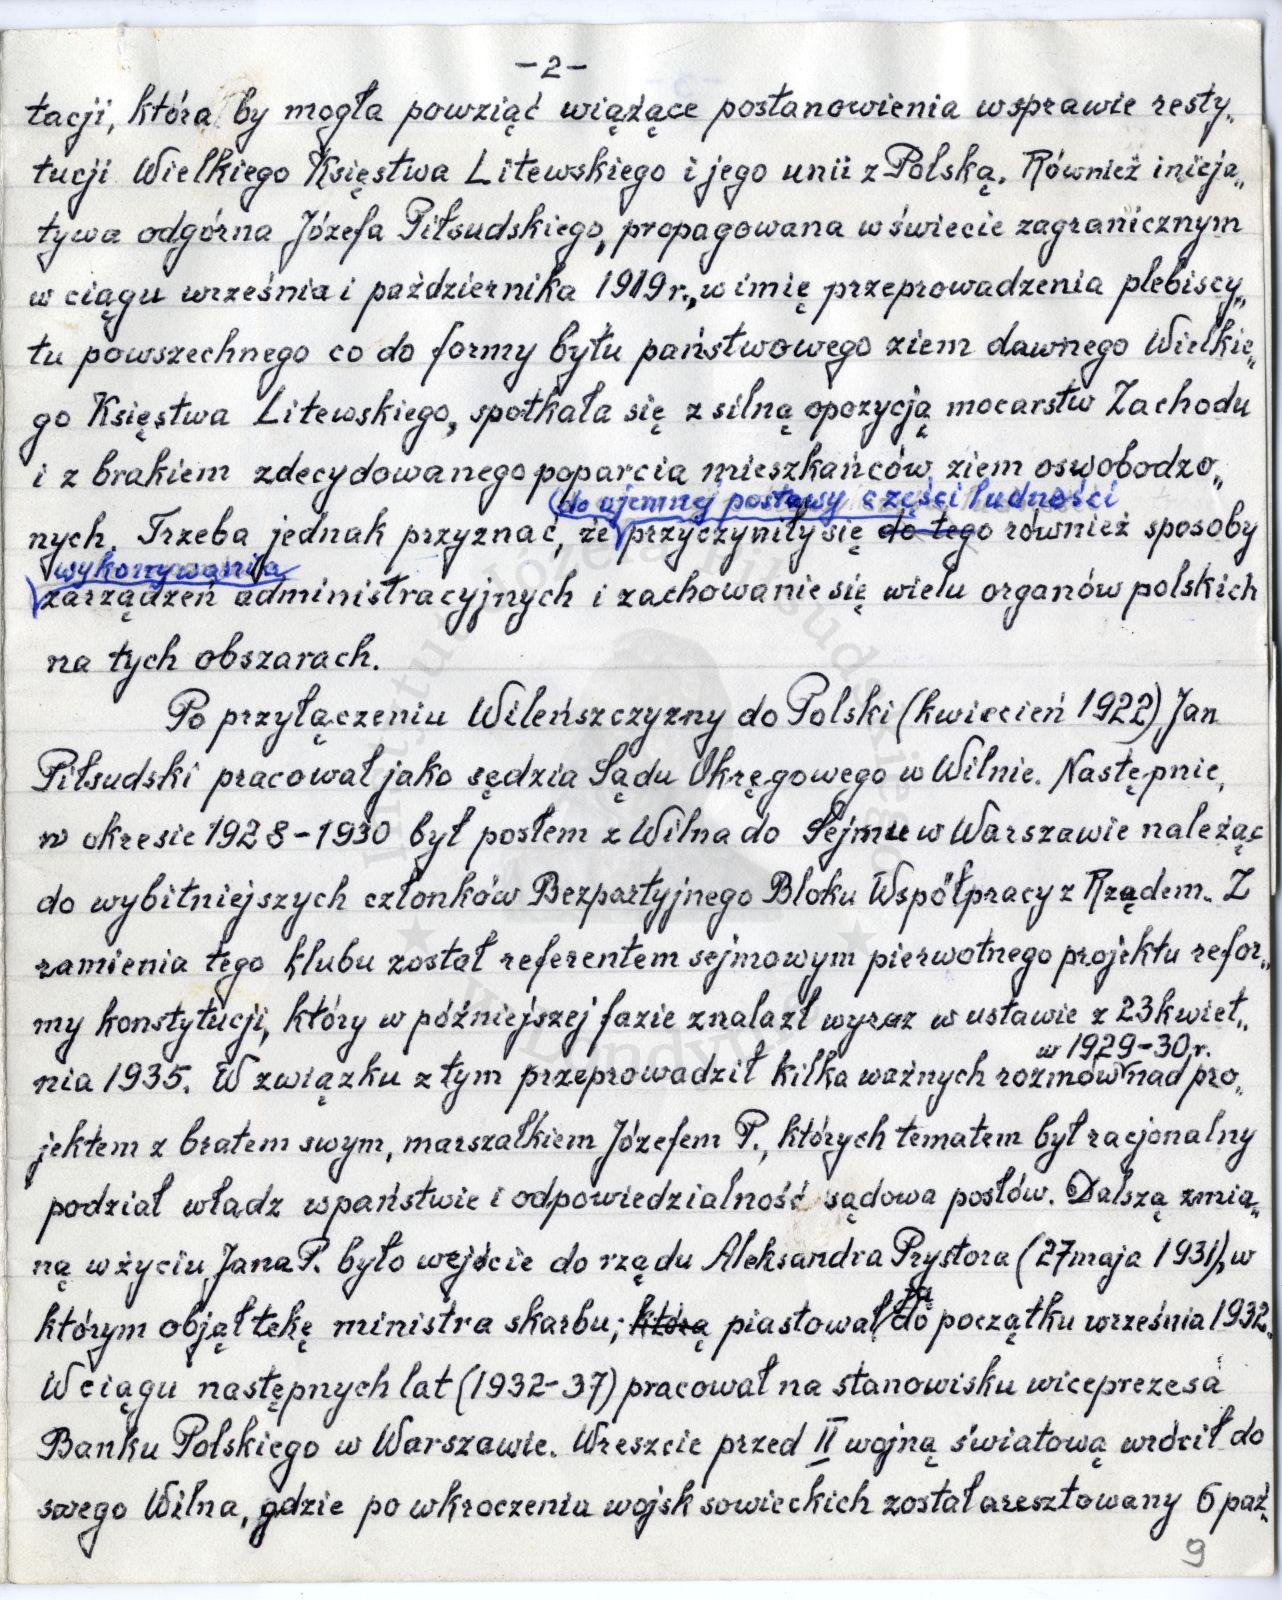 -2-
tacji, która by mogła powziąć wiążące postanowienia w sprawie resty„
tucji Wielkiego Księstwa Litewskiego i jego unii z Polską. Również inicja„
tywa odgórna Józefa Piłsudskiego, propagowana w świecie zagranicznym
w ciągu września i października 1919 r., w imię przeprowadzenia plebiscy„
tu powszechnego co do formy bytu państwowego ziem dawnego Wielkie„
go Księstwa Litewskiego, spotkała się z silną opozycją mocarstw Zachodu
i z brakiem zdecydowanego poparcia mieszkańców ziem oswobodzo„
do ujemnej postawy części ludności
nych. Trzeba jednak przyznać, że przyczyniły się do tego również sposoby
wykonywania
zarządzeń administracyjnych i zachowanie się wielu organów polskich
na tych obszarach.
Po przyłączeniu Wileńszczyzny do Polski (kwiecień 1922) Jan
Piłsudski pracował jako sędzia Sądu Okręgowego w Wilnie. Następnie,
w okresie 1928-1930 był posłem z Wilna do Sejmu w Warszawie należąc
do wybitniejszych członków Bezpartyjnego Bloku Współpracy z Rządem. Z
ramienia tego klubu został referentem sejmowym pierwotnego projektu refor„
my konstytucji, który w późniejszej fazie znalazł wyraz w ustawie z 23 kwiet„
w 1929-30 r.
nia 1935. W związku z tym przeprowadził kilka ważnych rozmów nad pro„
jektem z bratem swym, marszałkiem Józefem P., których tematem był racjonalny
podział władz w państwie i odpowiedzialność sądowa posłów. Dalszą zmia„
ną w życiu Jana P. było wejście do rządu Aleksandra Prystora (27 maja 1931), w
tą
którym objął tekę ministra skarbu; którą piastował do początku września 1932.
W ciągu następnych lat (1932-37) pracował na stanowisku wiceprezesa
Banku Polskiego w Warszawie. Wreszcie przed II wojną światową wrócił do
swego Wilna, gdzie po wkroczeniu wojsk sowieckich został aresztowany 6 paź„
9
Instytut Józefa Piłsudskiego
w Londynie